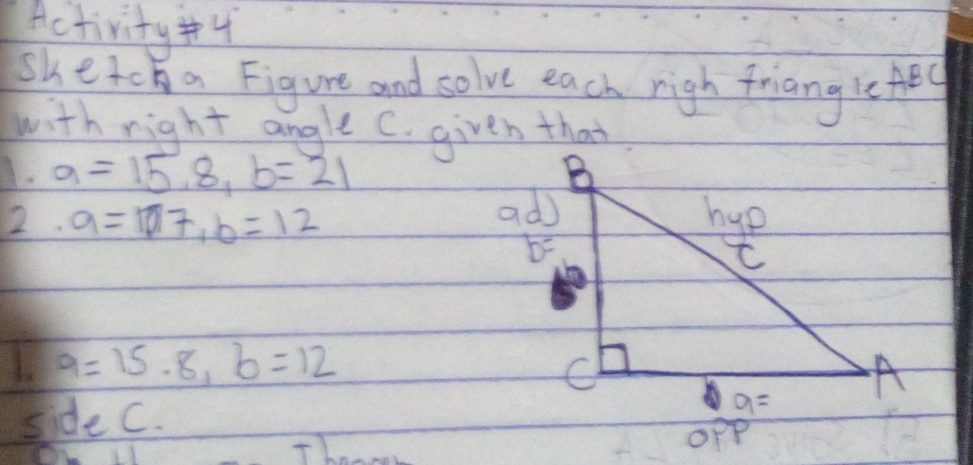 Activity #4
Sketch a Figure and solve each righ triangle ABC
with right angle C. given that
1. a = 15.8, b = 21
2. a = 7, b = 12
B
adj
b=
b
hyp
c
C
A
a=
opp
1. a = 15.8, b = 12
side C.